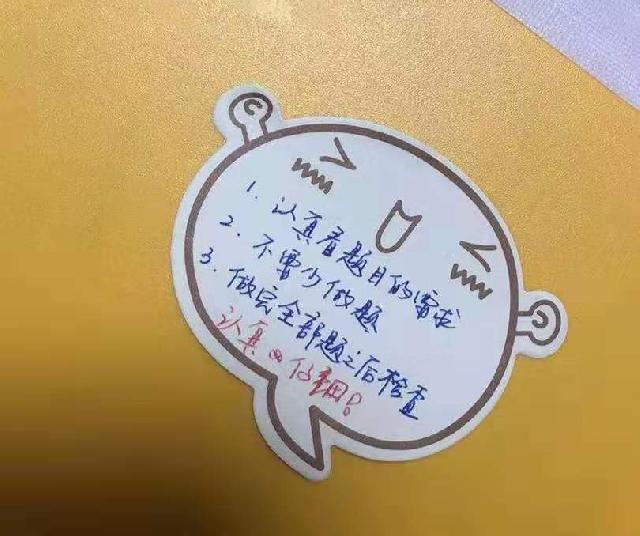 1. 认真看题目的需求
2. 不要少做题
3. 做完全部题之后检查
认真 仔细!